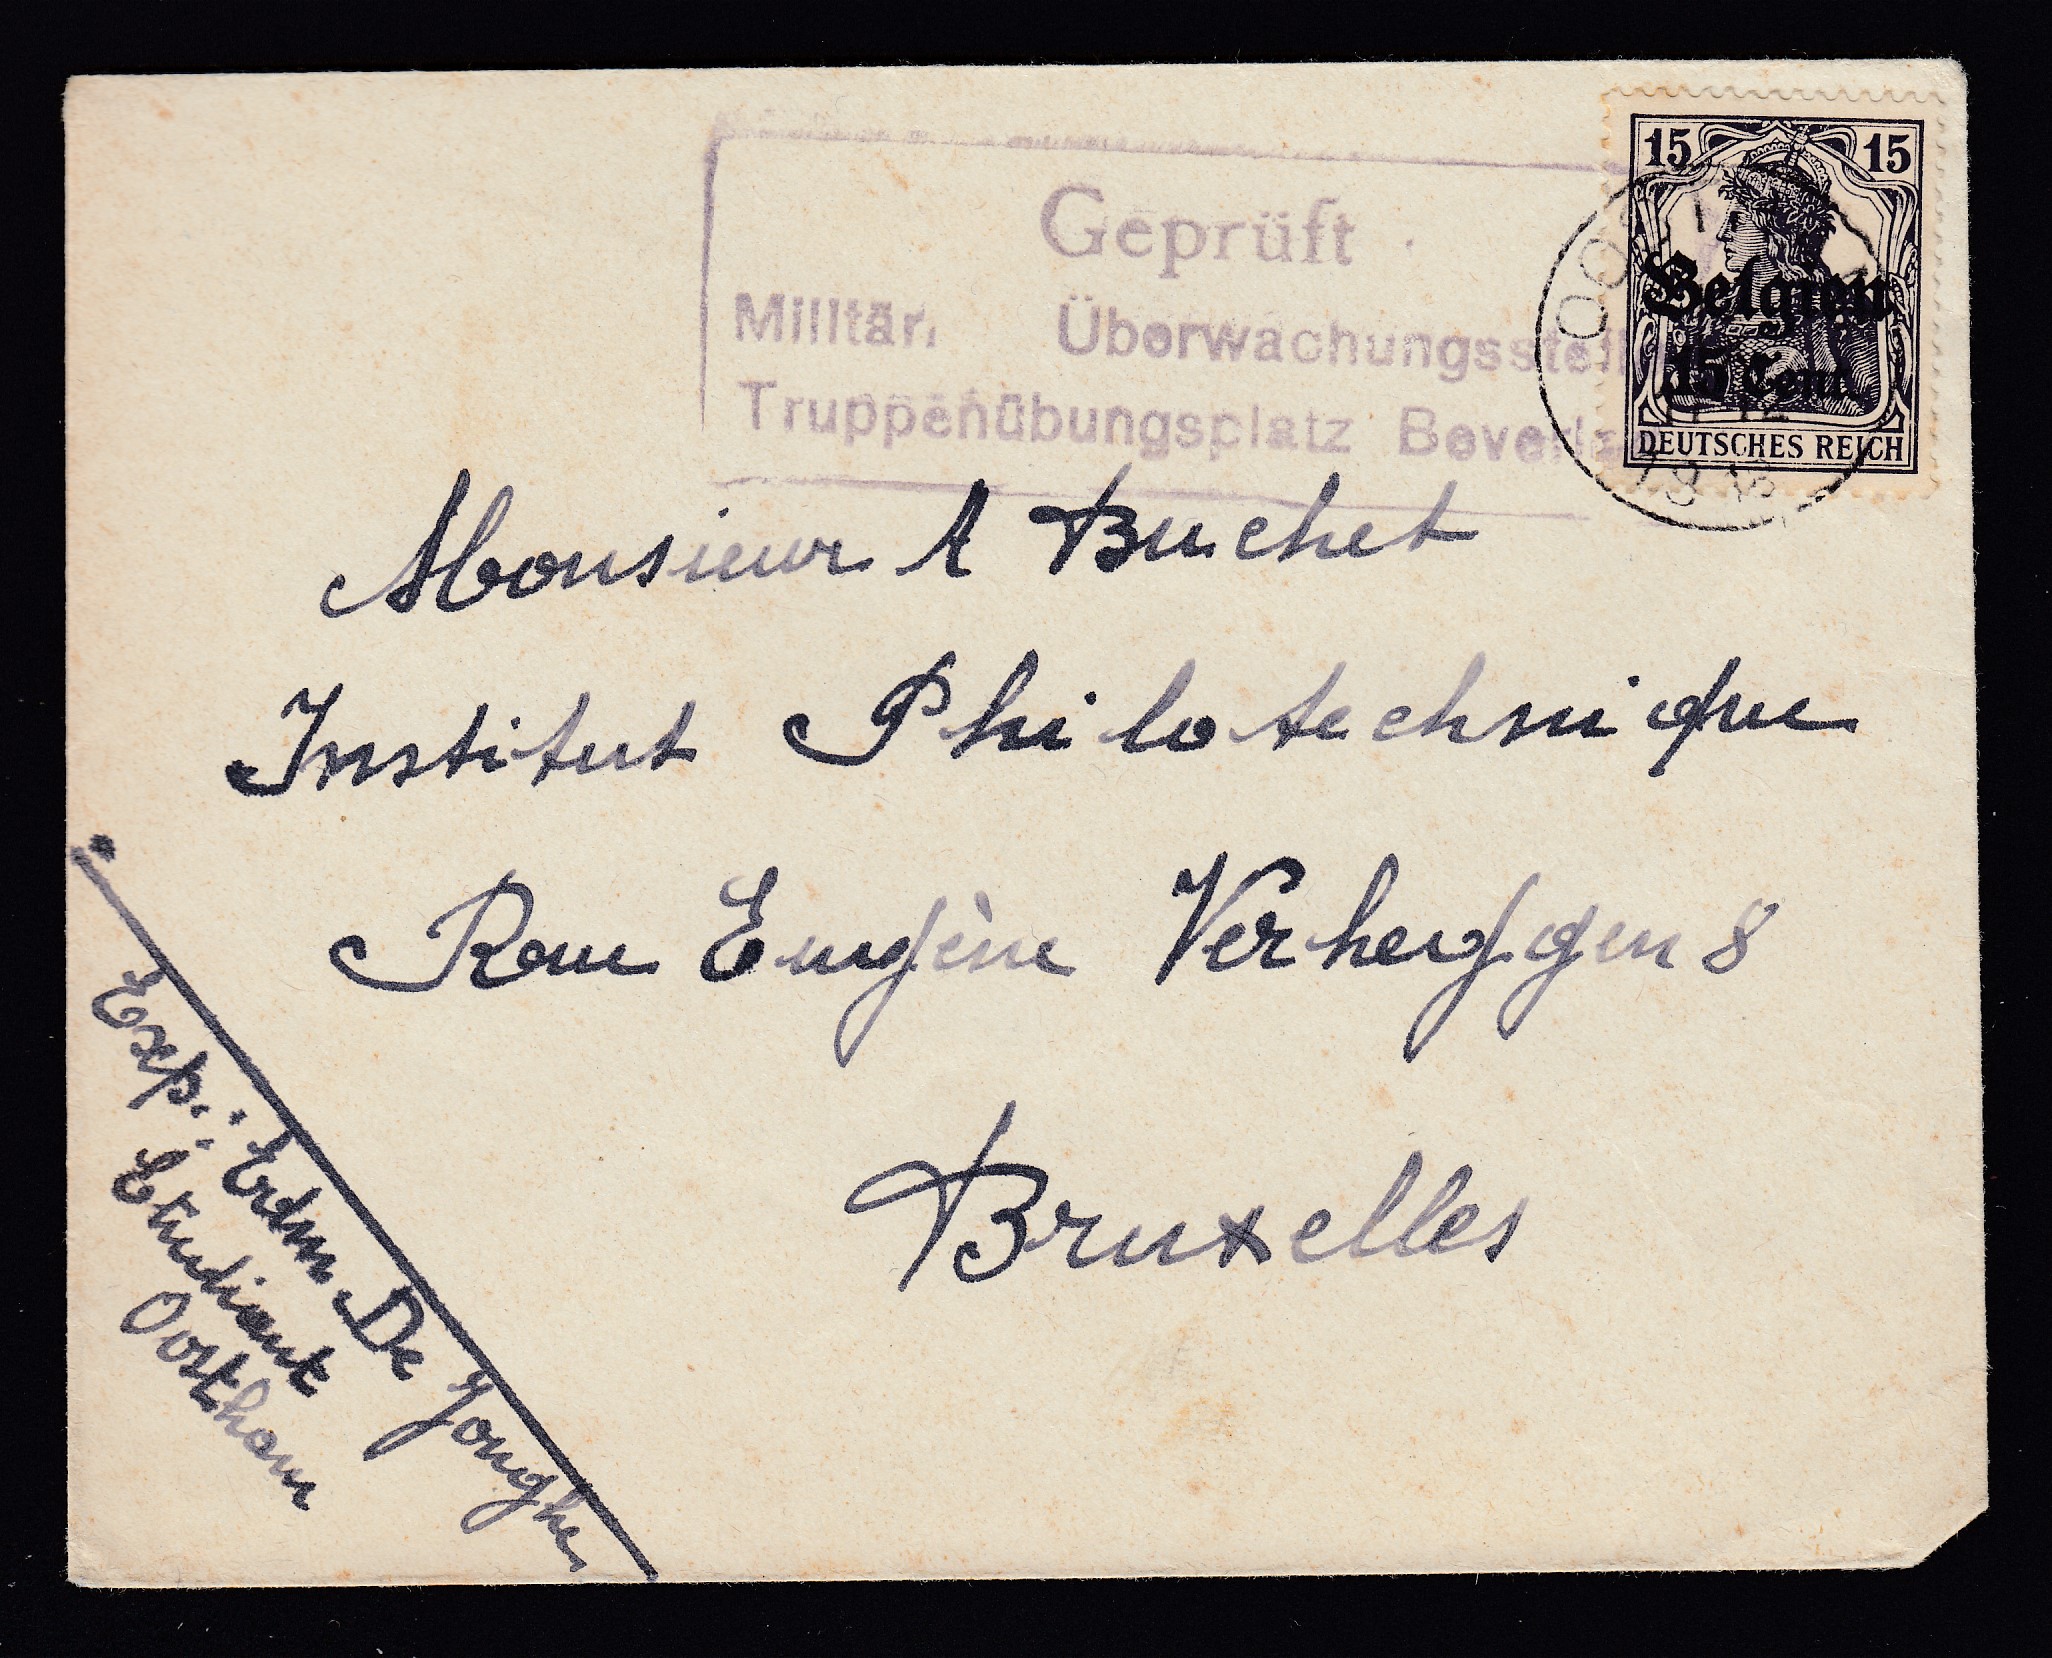 Geprüft
Militär. Überwachungsstell
Truppenübungsplatz Beverl
15 15
Belgien
15 Cent.
DEUTSCHES REICH
Monsieur A Buchet
Institut Philotechnique
Rue Eugène Verheggen 8
Bruxelles
Exp.: De Jonghe,
Etudiant
Oostham